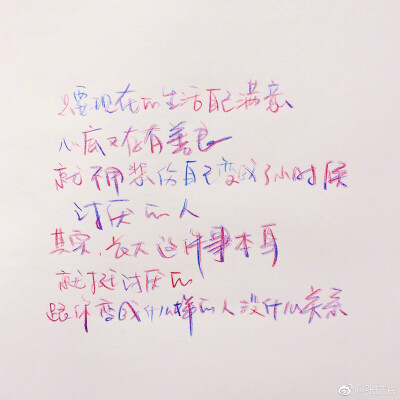 只要现在的生活自己满意
心底又存有善良
就不用自己变成了小时候
讨厌的人
其实，长大这件事本身
就挺讨厌的
跟你变成什么样的人没什么关系